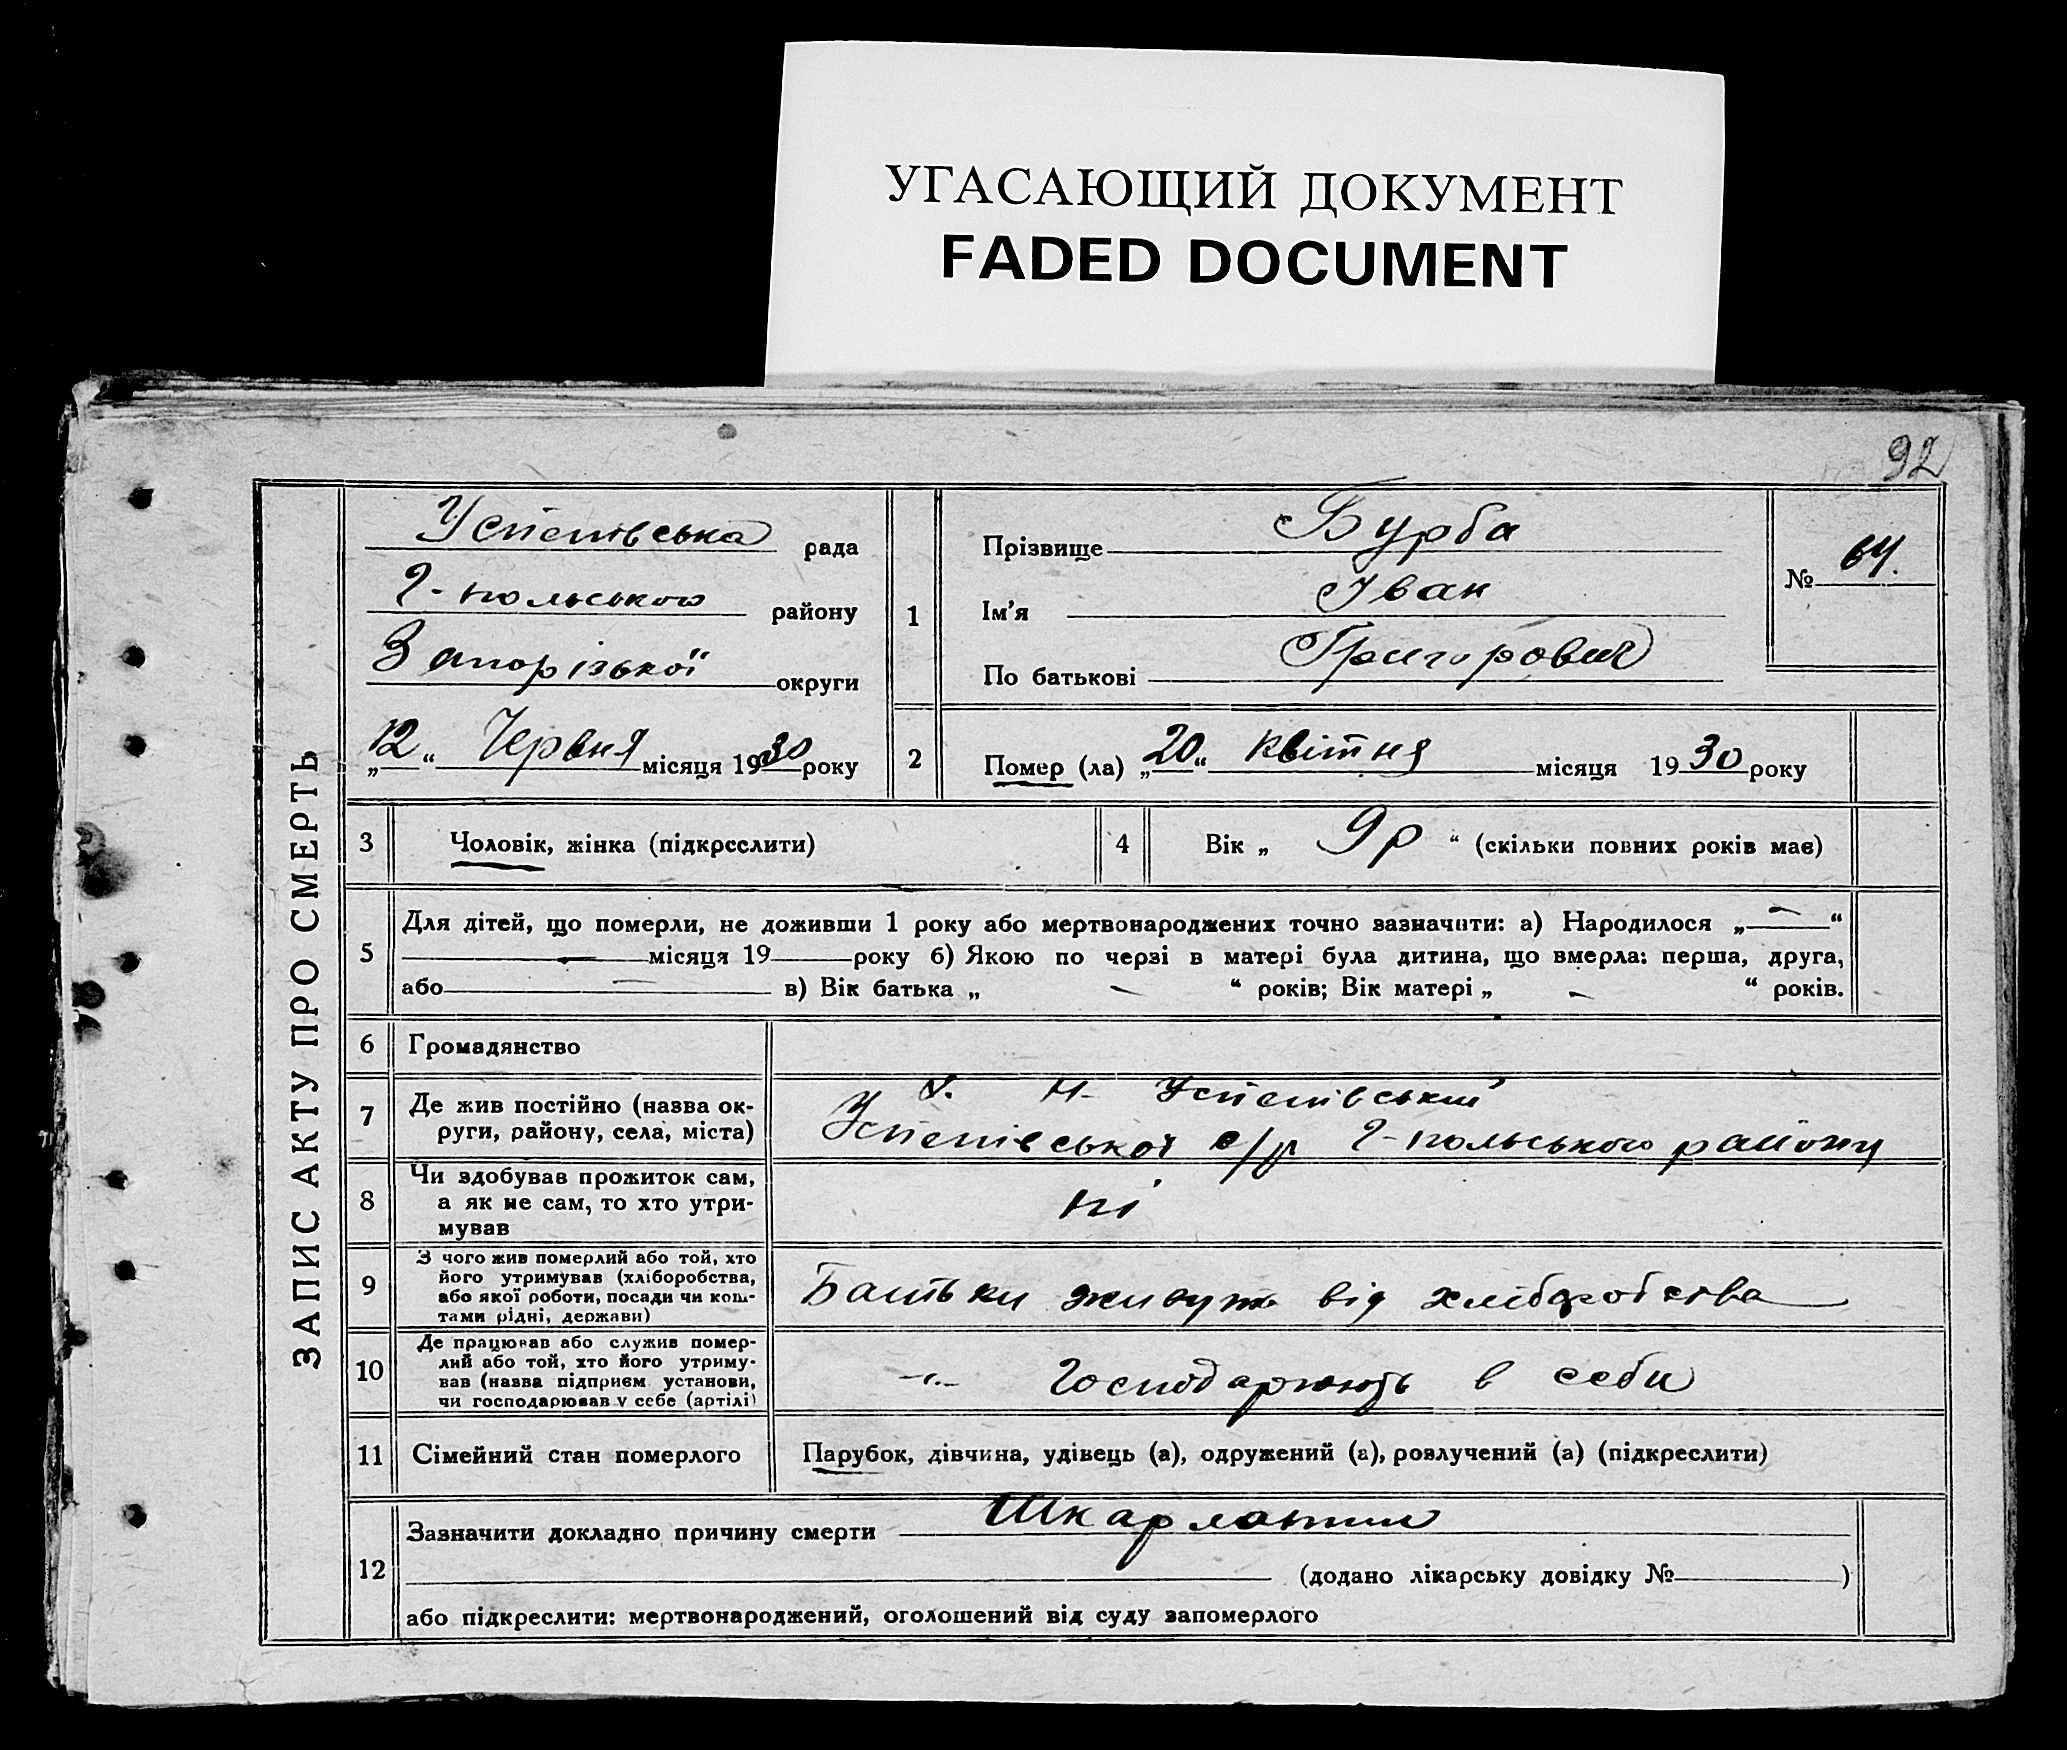 УГАСАЮЩИЙ ДОКУМЕНТ
FADED DOCUMENT
92
ЗАПИС АКТУ ПРО СМЕРТЬ
Успенівська рада
Г-польського району
Запорізької округи
„12“ Червня місяця 1930 року
1
Прізвище Бурба
Ім'я Іван
По батькові Григорович
№ 64.
2
Помер (ла) „20“ квітня місяця 1930 року
3 Чоловік, жінка (підкреслити)
4 Вік „ 9 р “ (скільки повних років має)
5
Для дітей, що померли, не доживши 1 року або мертвонароджених точно зазначити: а) Народилося „ — “
— місяця 19 року б) Якою по черзі в матері була дитина, що вмерла: перша, друга,
або — в) Вік батька „ — “ років; Вік матері „ - “ років.
6 Громадянство
7 Де жив постійно (назва ок-
руги, району, села, міста)
х. Н- Успенівський
Успенівської с/р Г-польського району
8 Чи здобував прожиток сам,
а як не сам, то хто утри-
мував
ні
9 З чого жив померлий або той, хто
його утримував (хліборобства,
або якої роботи, посади чи кош-
тами рідні, держави)
Батьки живуть від хліборобства
10 Де працював або служив помер-
лий або той, хто його утриму-
вав (назва підприєм. установи,
чи господарював у себе (артілі)
-"- Господарюють в себи
11 Сімейний стан померлого
Парубок, дівчина, удівець (а), одружений (а), розлучений (а) (підкреслити)
12
Зазначити докладно причину смерти Шкарлатин
(додано лікарську довідку № )
або підкреслити: мертвонароджений, оголошений від суду запомерлого